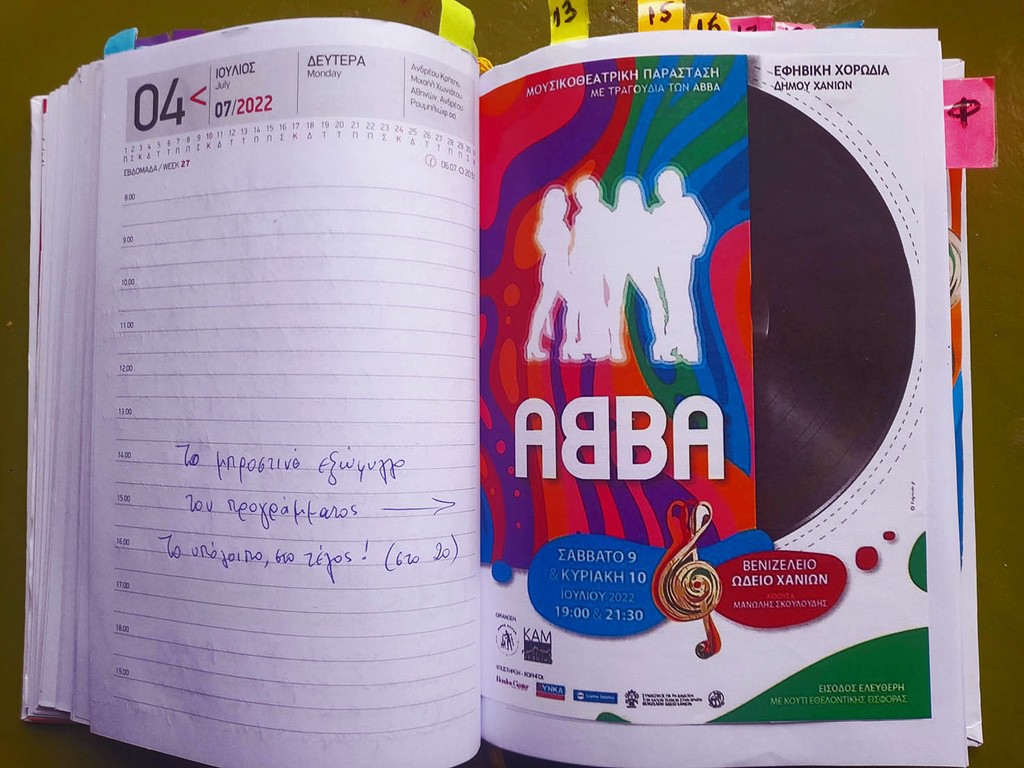 13
15
16
04
ΙΟΥΛΙΟΣ
July
07/2022
ΔΕΥΤΕΡΑ
Monday
Ανδρέου Κρήτης,
Μιχαήλ Χωνιάτου
Αθηνών, Ανδρέου
1 2 3 4 5 6 7 8 9 10 11 12 13 14 15 16 17 18 19 20 21 22 23 24 25 26 27 28 29 30
Π Σ Κ Δ Τ Τ Π Π Σ Κ Δ Τ Τ Π Π Σ Κ Δ Τ Τ Π Π Σ Κ Δ Τ Τ Π Π Σ
ΕΒΔΟΜΑΔΑ / WEEK 27
06:07
8.00
9.00
10.00
11.00
12.00
13.00
14.00
Το μπροστινό εξώφυλλο
15.00
του προγράμματος →
16.00
Το υπόλοιπο, στο τέλος! (στο 20)
17.00
18.00
19.00
ΜΟΥΣΙΚΟΘΕΑΤΡΙΚΗ ΠΑΡΑΣΤΑΣΗ
ΜΕ ΤΡΑΓΟΥΔΙΑ ΤΩΝ ABBA
ΕΦΗΒΙΚΗ ΧΟΡΩΔΙΑ
ΔΗΜΟΥ ΧΑΝΙΩΝ
Φ
ABBA
ΣΑΒΒΑΤΟ 9
& ΚΥΡΙΑΚΗ 10
ΙΟΥΛΙΟΥ 2022
19:00 & 21:30
ΒΕΝΙΖΕΛΕΙΟ
ΩΔΕΙΟ ΧΑΝΙΩΝ
ΑΙΘΟΥΣΑ
ΜΑΝΩΛΗΣ ΣΚΟΥΛΟΥΔΗΣ
ΟΡΓΑΝΩΣΗ:
ΚΑΜ
ΥΠΟΣΤΗΡΙΞΗ - ΧΟΡΗΓΟΙ
ΣΥΝΚΑ
ΕΙΣΟΔΟΣ ΕΛΕΥΘΕΡΗ
ΜΕ ΚΟΥΤΙ ΕΘΕΛΟΝΤΙΚΗΣ ΕΙΣΦΟΡΑΣ